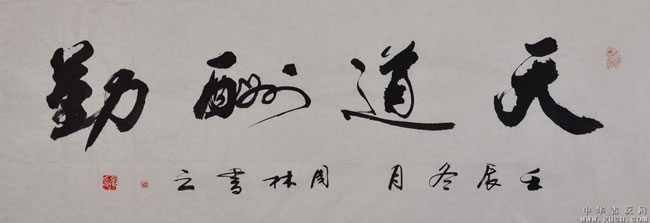 天道酬勤
壬辰冬月 周林書之
中华古玩网
www.gucn.com